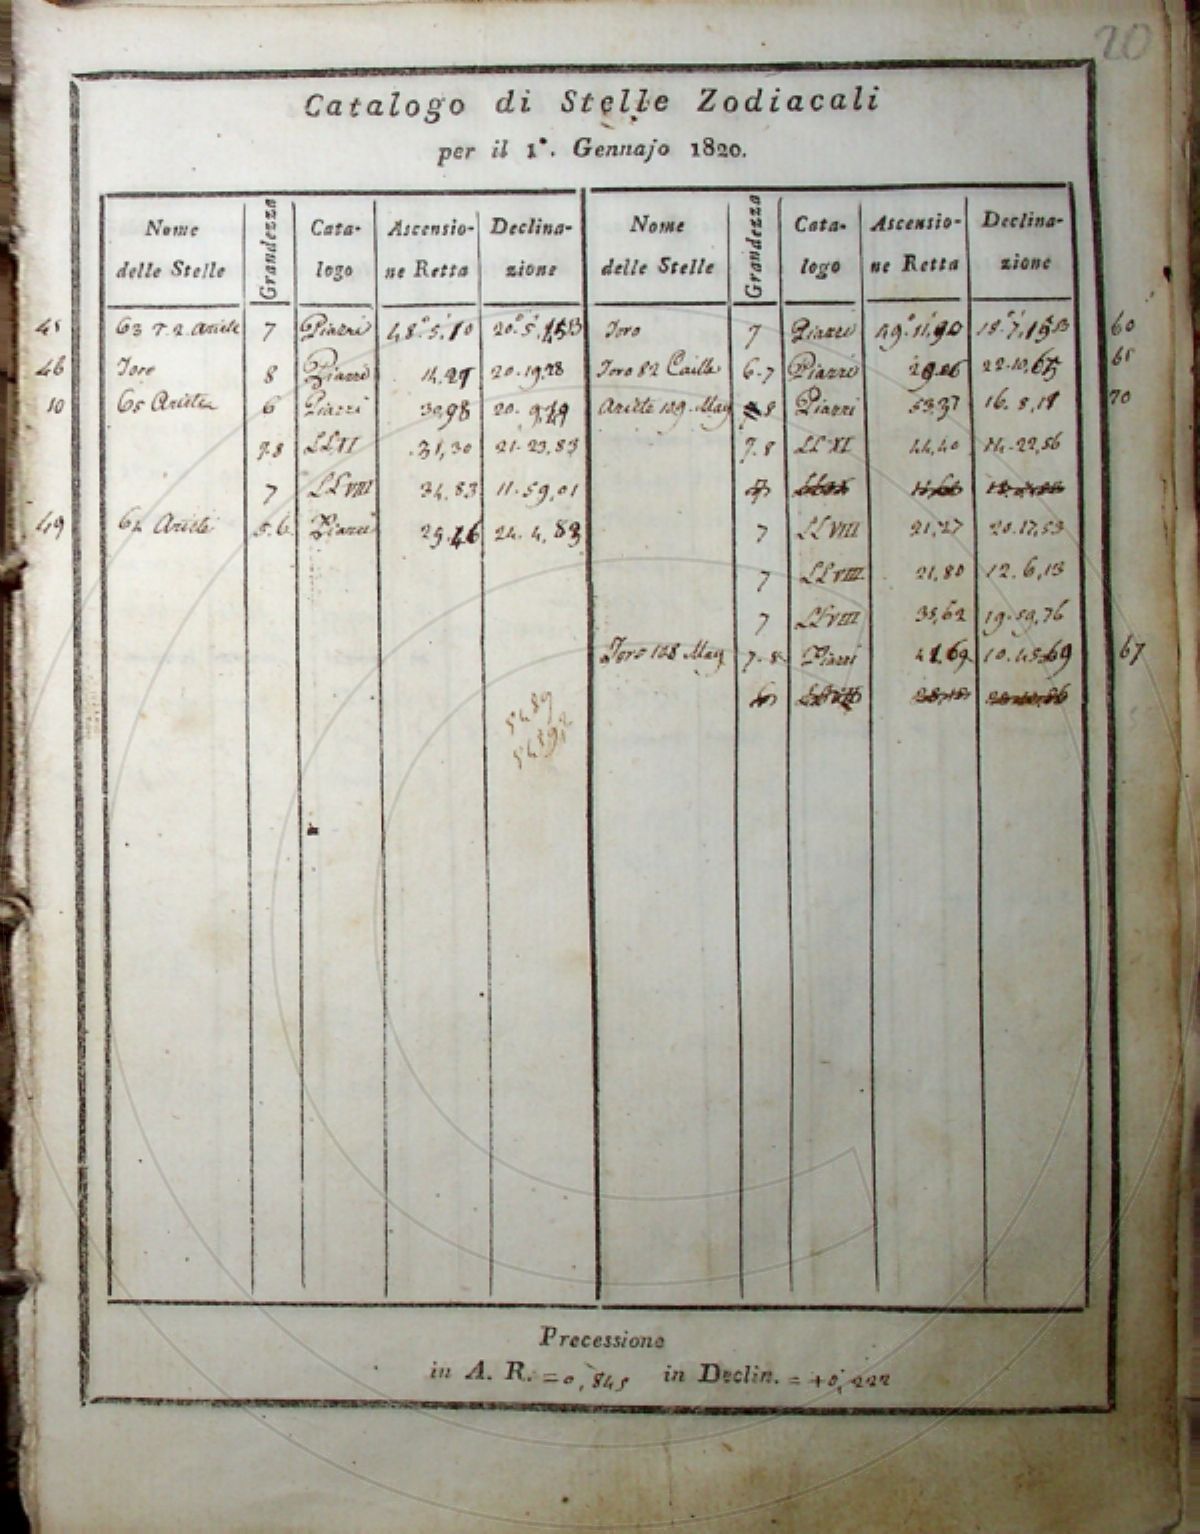 20
Catalogo di Stelle Zodiacali
per il 1°. Gennajo 1820.
Nome delle Stelle Grandezza Catalogo Ascensione Retta Declinazione Nome delle Stelle Grandezza Catalogo Ascensione Retta Declinazione
45 63 τ. 2. Ariete 7 Piazzi 48° 5,10 20° 5, Toro 7 Piazzi 49° 11,90 18° 7, 60
46 Toro 8 Piazzi 14,27 20. 19,28 Toro 82 Caille 6.7 Piazzi 22. 10,65 65
10 65 Ariete 6 Piazzi 30,98 20. Ariete 109 May 8 Piazzi 53,37 16. 8,18 70
7.8 LL XI 31,30 21. 23,83 7.8 LL XI 44,40 14. 22,56
7 LL VIII 34,83 11. 59,01
49 64 Ariete 5.6 Piazzi 29,46 24. 4,83 7 LL VIII 21,27 20. 17,53
7 LL VIII 21,80 12. 6,13
7 LL VIII 35,62 19. 59,76
Toro 108 May 7.8 Piazzi 41,69 10. 45,69 67
5489
Precessione
in A. R. = 0,845 in Declin. = +0,222